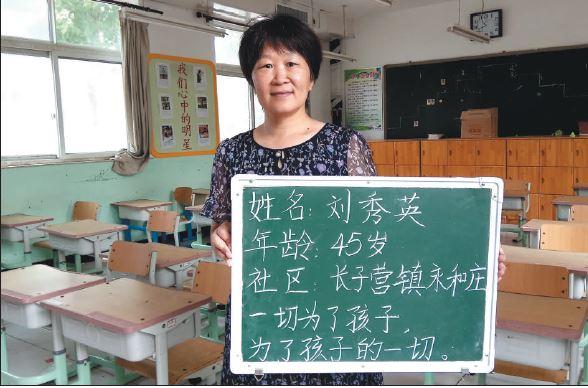 我们心中的明星
姓名:刘秀英
年龄:45岁
社区:长子营镇永和庄
一切为了孩子,
为了孩子的一切。